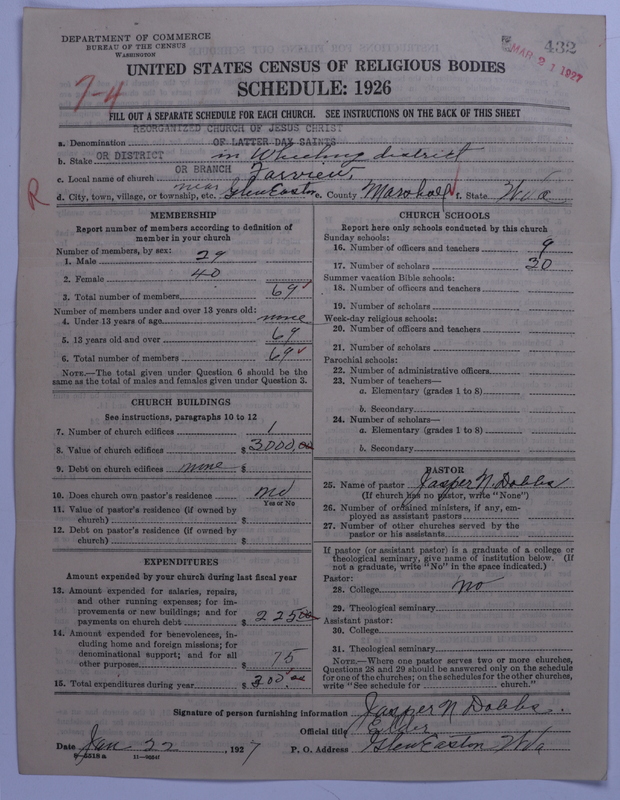 DEPARTMENT OF COMMERCE
BUREAU OF THE CENSUS
WASHINGTON
432
MAR 21 1927
7-4
UNITED STATES CENSUS OF RELIGIOUS BODIES
SCHEDULE: 1926
FILL OUT A SEPARATE SCHEDULE FOR EACH CHURCH. SEE INSTRUCTIONS ON THE BACK OF THIS SHEET
REORGANIZED CHURCH OF JESUS CHRIST
a. Denomination OF LATTER DAY SAINTS
b. Stake OR DISTRICT in Wheeling district
c. Local name of church OR BRANCH Fairview,
R
d. City, town, village, or township, etc. near Glen Easton e. County Marshall f. State W Va
MEMBERSHIP
Report number of members according to definition of
member in your church
Number of members, by sex:
1. Male 29
2. Female 40
3. Total number of members 69
Number of members under and over 13 years old:
4. Under 13 years of age none
5. 13 years old and over 69
6. Total number of members 69
NOTE.—The total given under Question 6 should be
same as the total of males and females given under Question 3.
CHURCH BUILDINGS
See instructions, paragraphs 10 to 12
7. Number of church edifices 1
8. Value of church edifices $ 3000.00
9. Debt on church edifices none $
10. Does church own pastor's residence no
Yes or No
11. Value of pastor's residence (if owned by
church) $
12. Debt on pastor's residence (if owned by
church) $
EXPENDITURES
Amount expended by your church during last fiscal year
13. Amount expended for salaries, repairs,
and other running expenses; for im-
provements or new buildings; and for
payments on church debt $ 225.00
14. Amount expended for benevolences, in-
cluding home and foreign missions; for
denominational support; and for all
other purposes $ 75
15. Total expenditures during year $ 300.00
CHURCH SCHOOLS
Report here only schools conducted by this church
Sunday schools:
16. Number of officers and teachers 9
17. Number of scholars 30
Summer vacation Bible schools:
18. Number of officers and teachers
19. Number of scholars
Week-day religious schools:
20. Number of officers and teachers
21. Number of scholars
Parochial schools:
22. Number of administrative officers
23. Number of teachers—
a. Elementary (grades 1 to 8)
b. Secondary
24. Number of scholars—
a. Elementary (grades 1 to 8)
b. Secondary
PASTOR
25. Name of pastor Jasper N. Dobbs
(If church has no pastor, write "None")
26. Number of ordained ministers, if any, em-
ployed as assistant pastors
27. Number of other churches served by the
pastor or his assistants
If pastor (or assistant pastor) is a graduate of a college or
theological seminary, give name of institution below. (If
not a graduate, write "No" in the space indicated.)
Pastor:
28. College no
29. Theological seminary
Assistant pastor:
30. College
31. Theological seminary
NOTE.—Where one pastor serves two or more churches,
Questions 28 and 29 should be answered only on the schedule
for one of the churches; on the schedules for the other churches,
write "See schedule for church."
Signature of person furnishing information Jasper N Dobbs.
Official title Elder
Date Jan 22, 1927 P. O. Address Glen Easton W Va